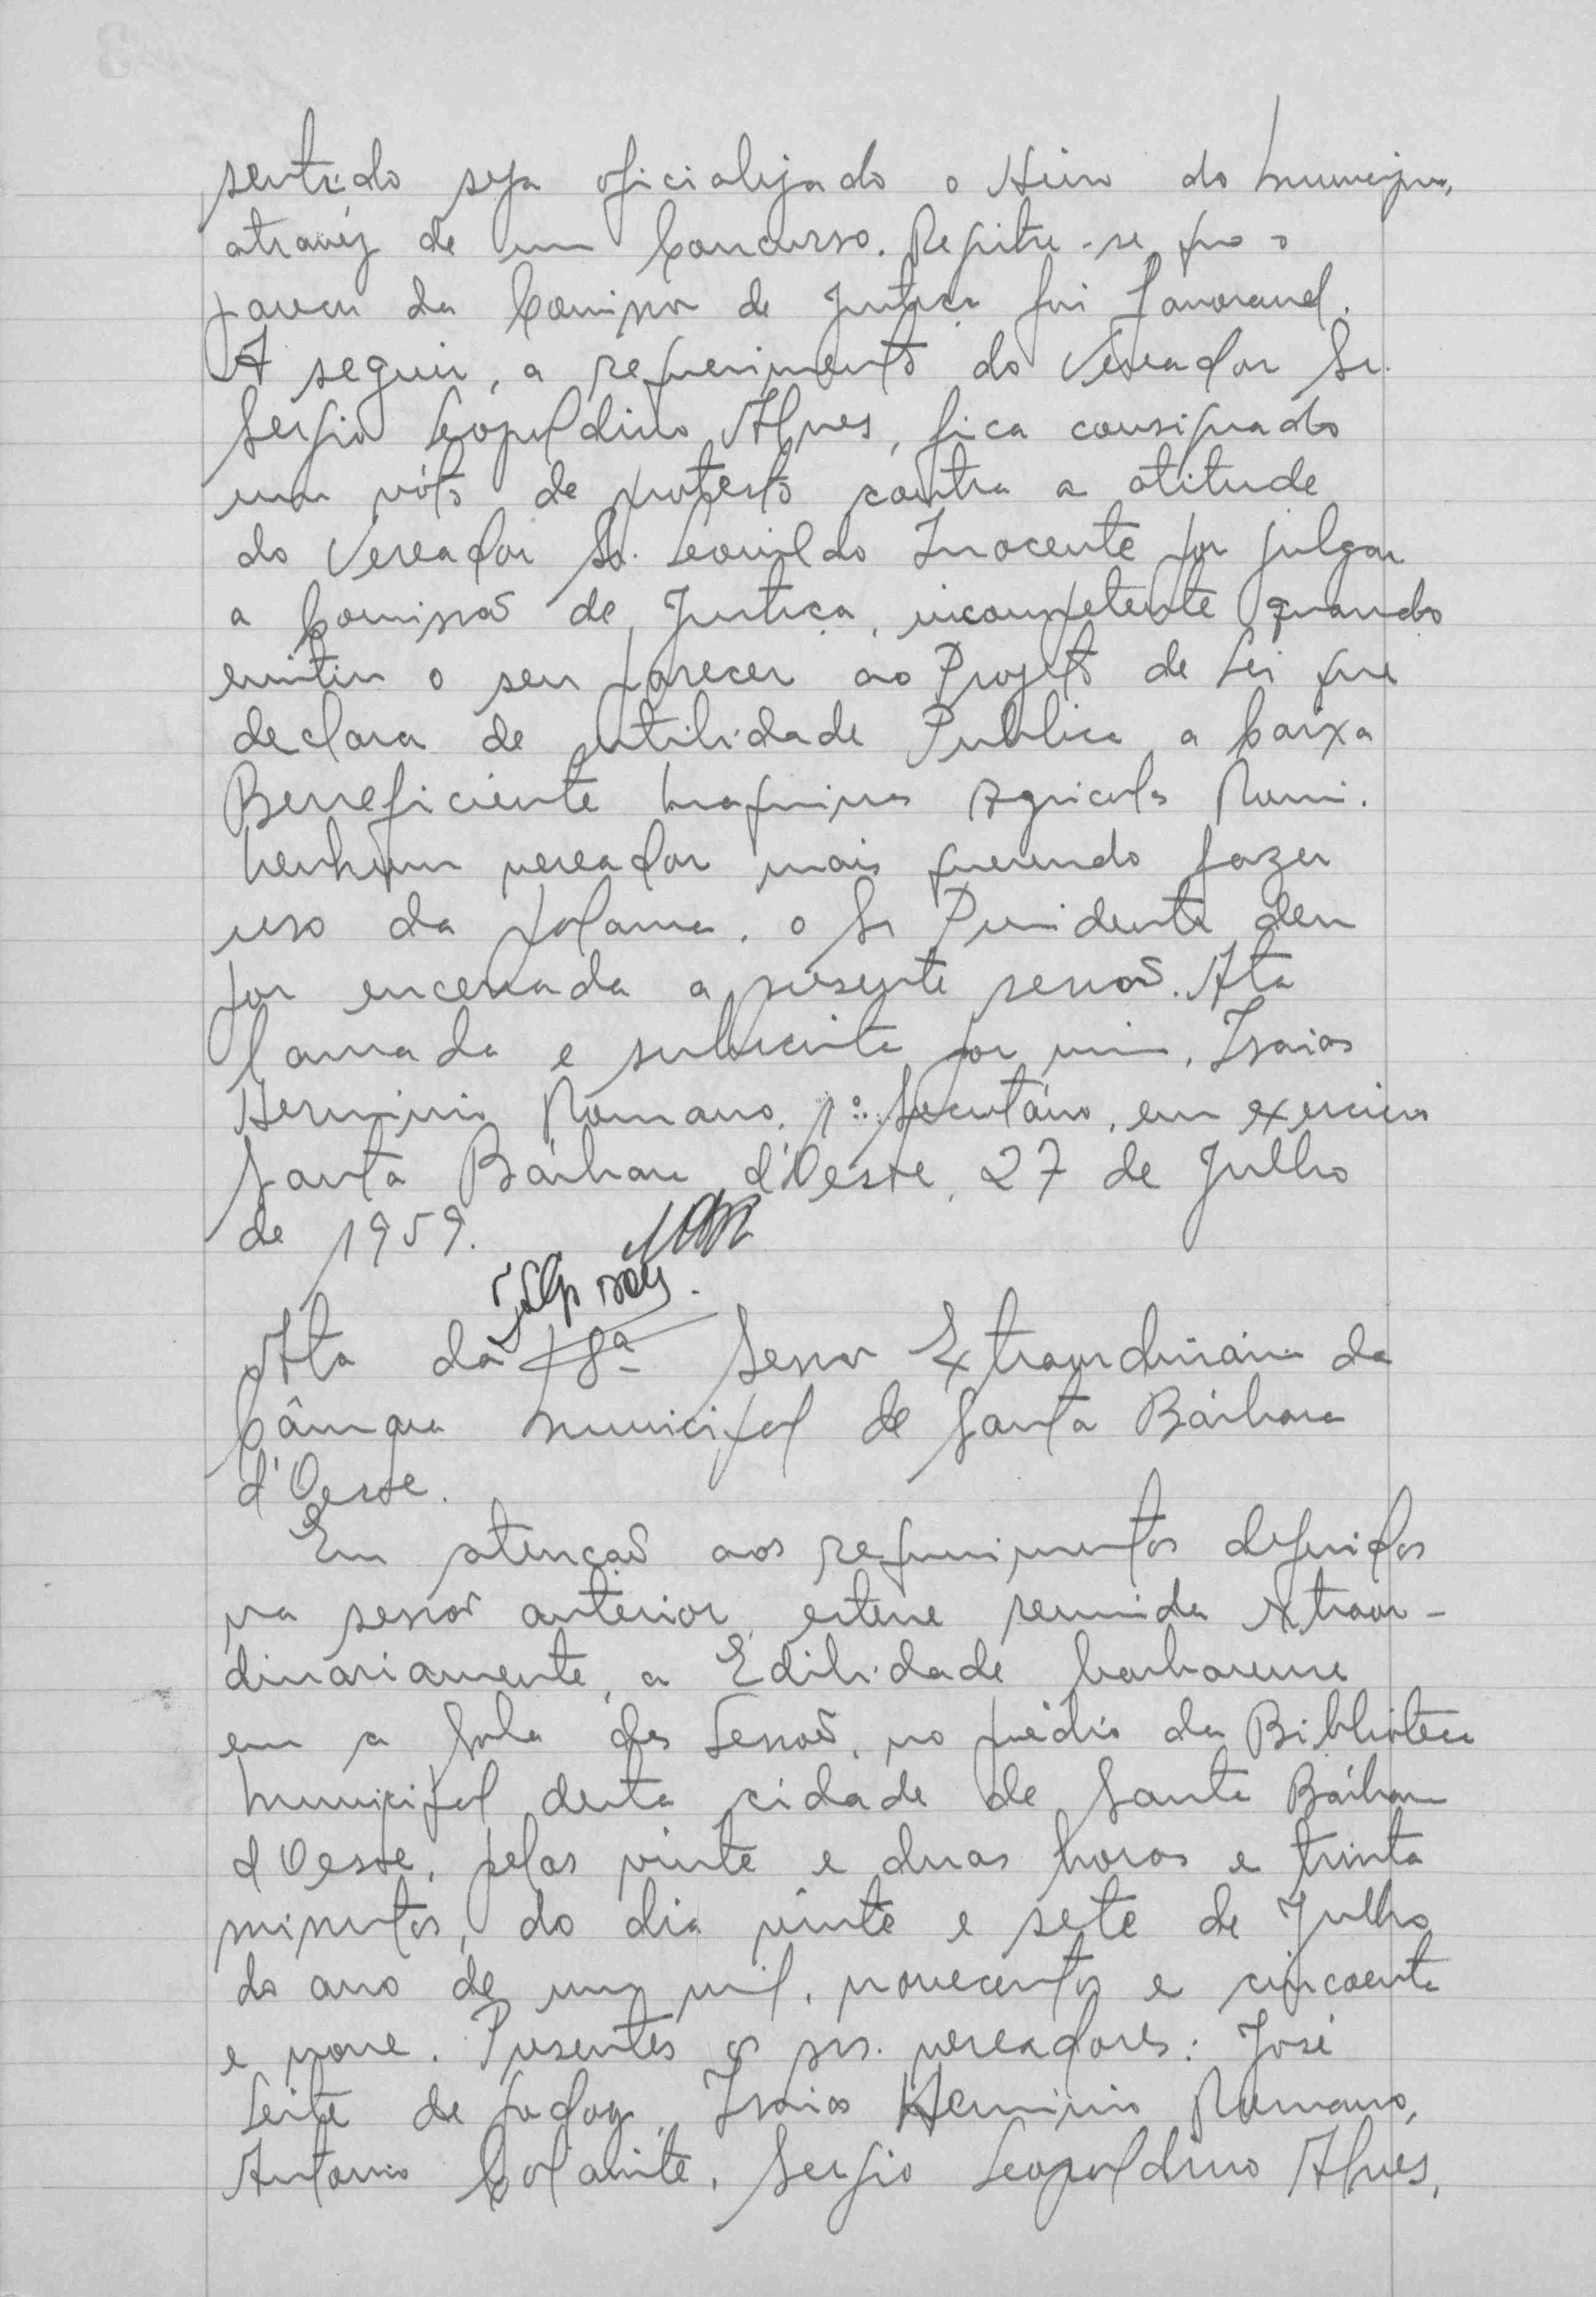 sentido seja oficializado o Hino do Municipio,
atravéz de um Concurso. Registre-se que o
parecer da Comissão de Justiça foi favoravel.
A seguir, a requerimento do Vereador Sr.
Sergio Leopoldino Alves, fica consignado
um vóto de protesto contra a atitude
do Vereador Sr. Leonildo Inocente por julgar
a Comissão de Justiça, incompetente quando
emitiu o seu parecer ao Projeto de Lei que
declara de utilidade Publica a Caixa
Beneficiente Maquinas Agricolas Romi.
Nenhum vereador mais querendo fazer
uso da palavra, o Sr Presidente deu
por encerrada a presente sessão. Ata
lavrada e subscrita por mim, Isaias
Herminio Romano, 1º Secretário, em exercicio
Santa Bárbara d'Oeste, 27 de Julho
de 1959.
Ata da 18ª Sessão Extraordinária da
Câmara Municipal de Santa Bárbara
d'Oeste.
Em atenção aos requerimentos deferidos
na sessão anterior, esteve reunida extraor-
dinariamente, a Edilidade barbarense
em a Sala das Sessões, no prédio da Biblioteca
Municipal desta cidade de Santa Bárbara
d'Oeste, pelas vinte e duas horas e trinta
minutos, do dia vinte e sete de Julho
do ano de um mil, novecentos e cincoenta
e nove. Presentes os srs. vereadores: José
Leite de Godoy, Isaias Herminio Romano,
Antonio Sergio Leopoldino Alves,